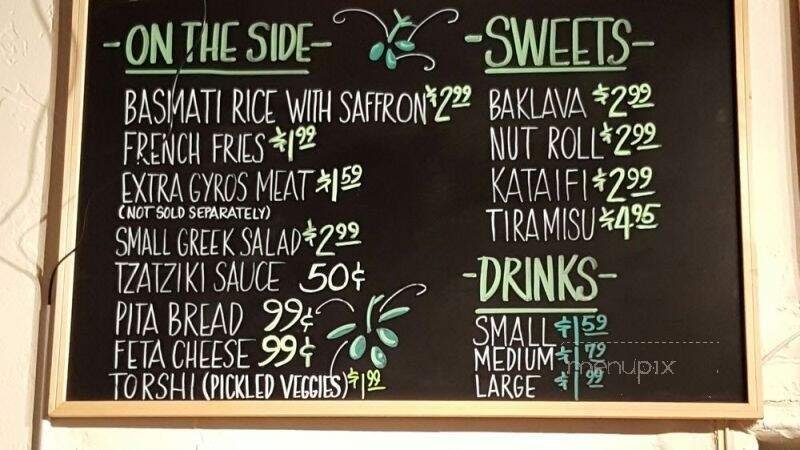 -ON THE SIDE-
BASMATI RICE WITH SAFFRON $2.99
FRENCH FRIES $1.99
EXTRA GYROS MEAT $1.59
(NOT SOLD SEPARATELY)
SMALL GREEK SALAD $2.99
TZATZIKI SAUCE 50¢
PITA BREAD 99¢
FETA CHEESE 99¢
TORSHI (PICKLED VEGGIES) $1.99
-SWEETS-
BAKLAVA $2.99
NUT ROLL $2.99
KATAIFI $2.99
TIRAMISU $4.95
-DRINKS-
SMALL $1.59
MEDIUM $1.79
LARGE $1.99
menupix